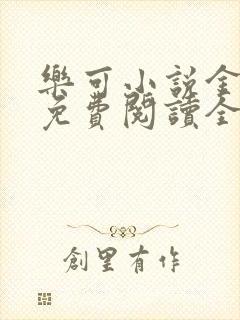 樂可小說全
免費閱讀全
創里有作